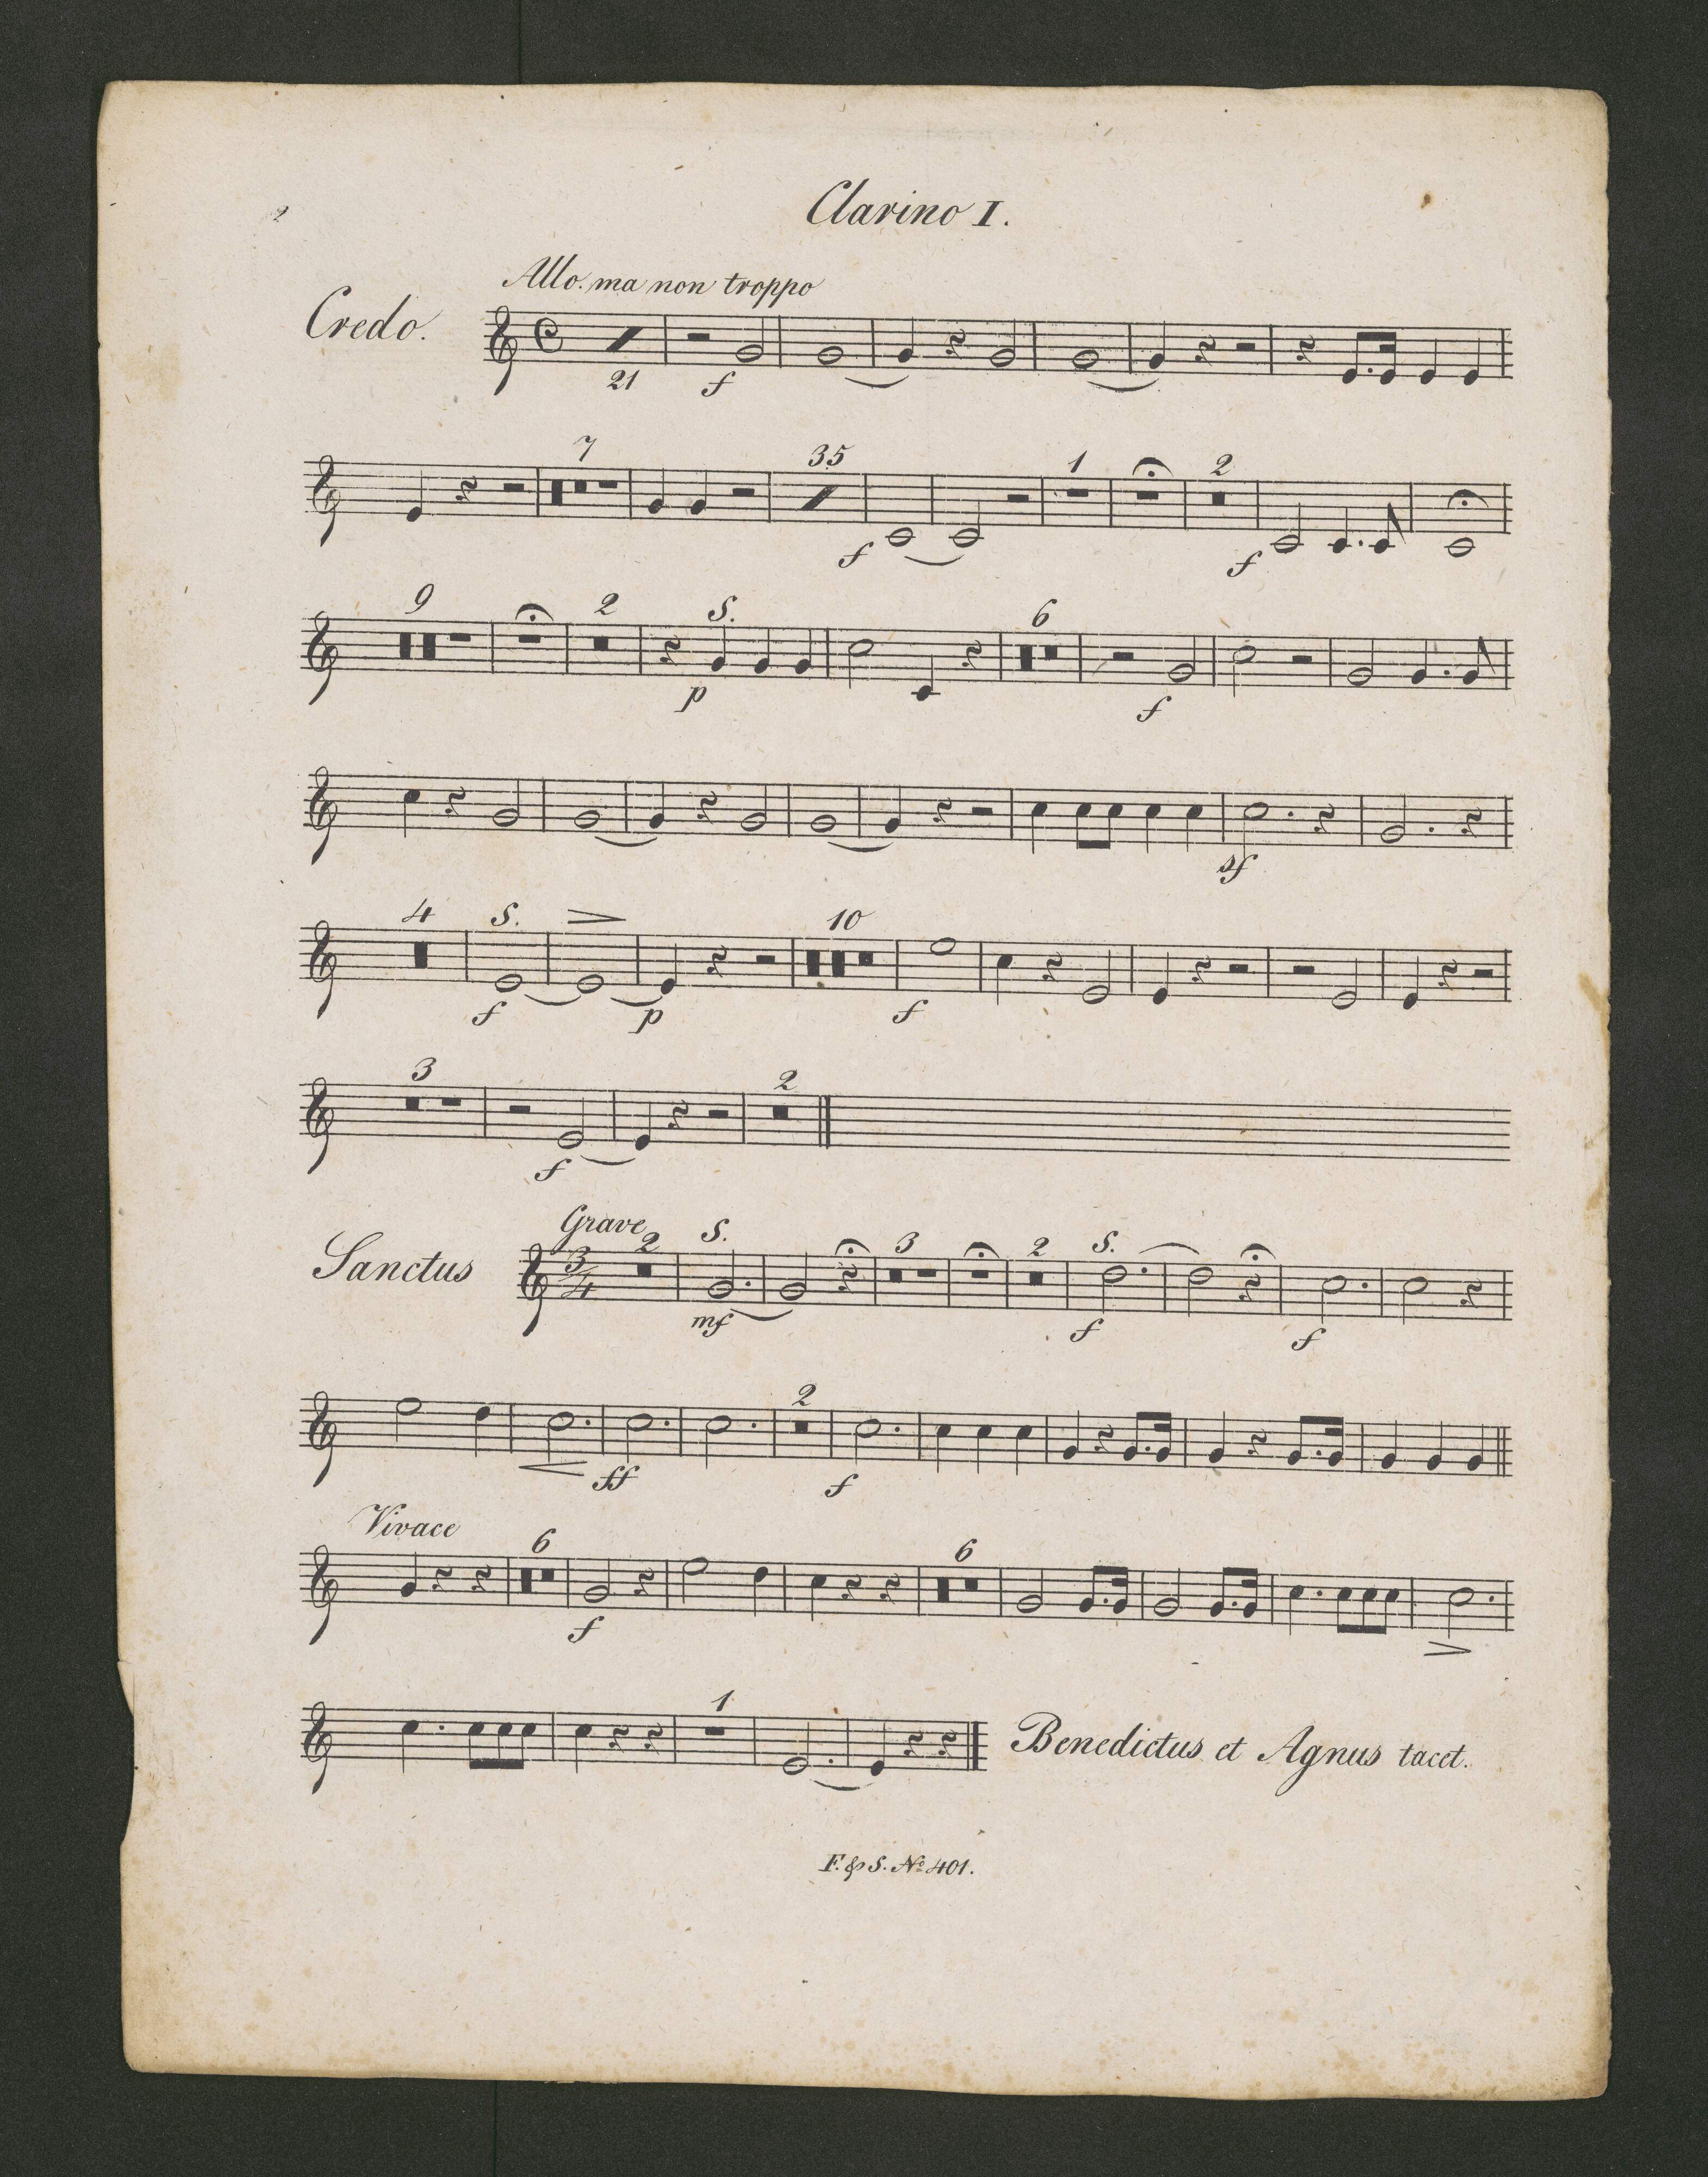 2
Clarino I.
Allo. ma non troppo
Credo.
21 f
7 35 1 2
f f
9 2 S. 6
p f
sf
4 S. 10
f p f
3 2
f
Grave
Sanctus 3/4 2 S. 3 2 S.
mf f f
2
ff f
Vivace
6 6
f
1
Benedictus et Agnus tacet.
F. & S. No 401.